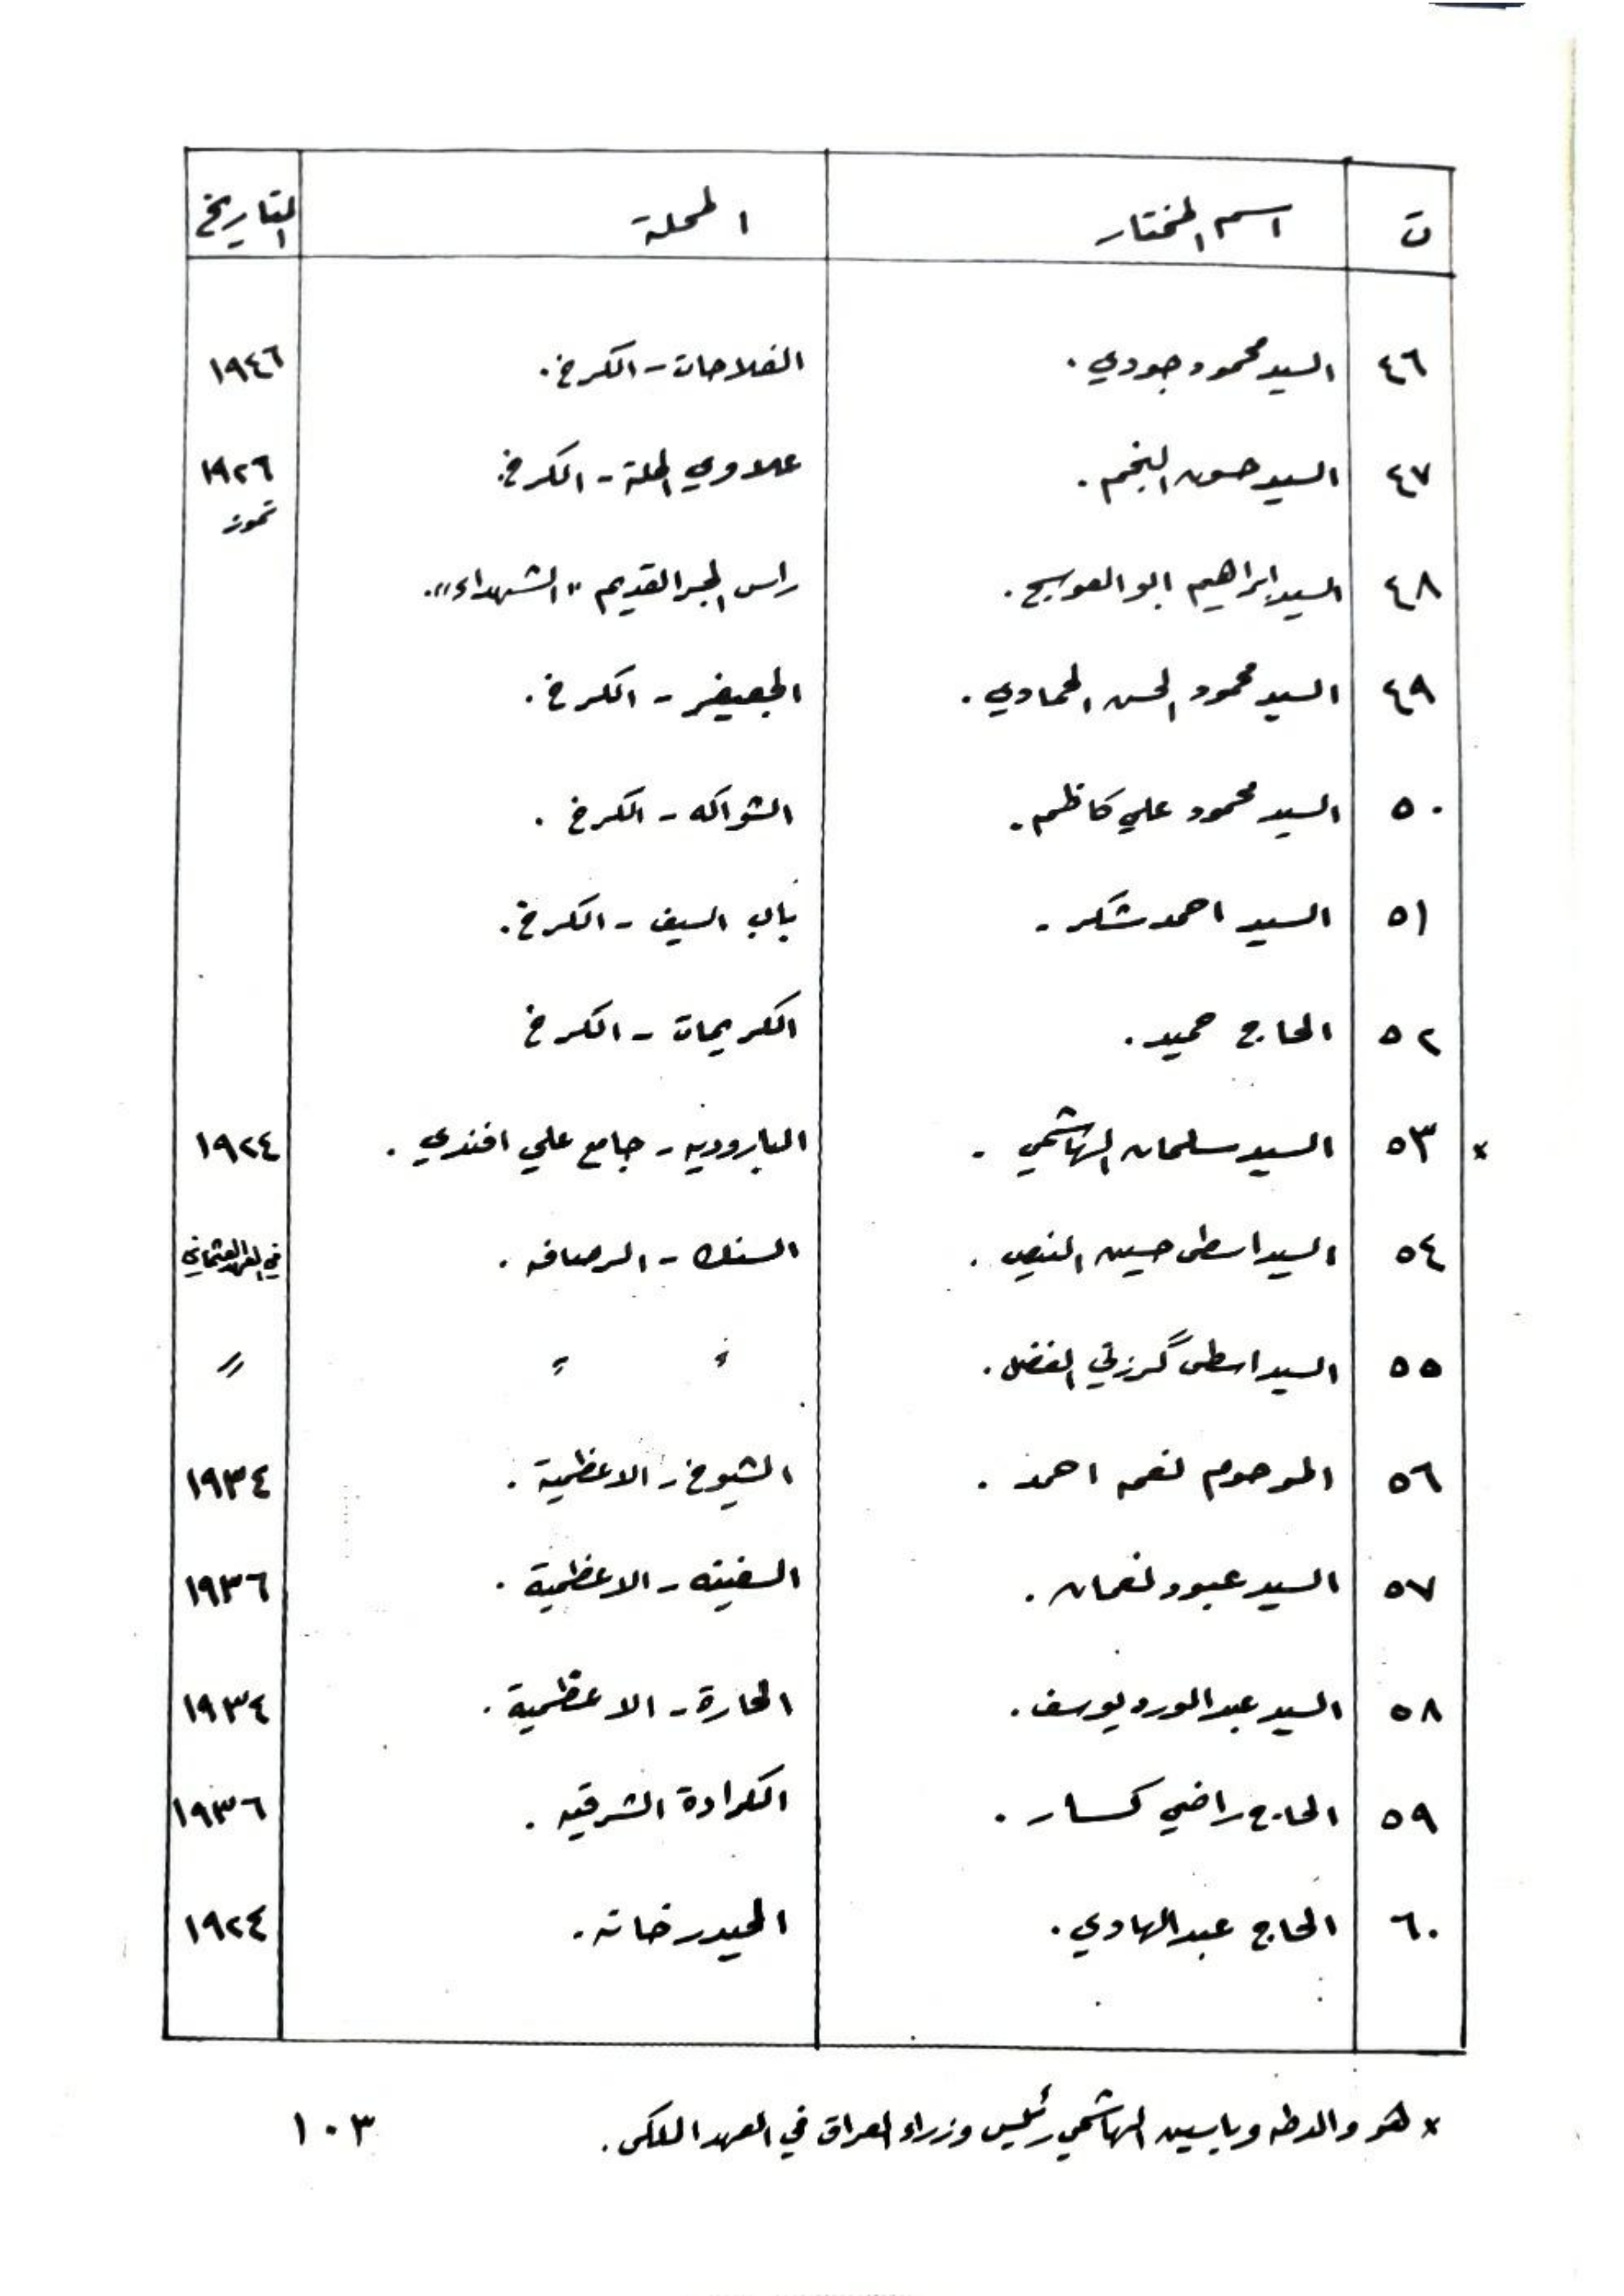 ت اسم المختار المحلة التاريخ
٤٦ السيد محمود جودي . الفلاحات - الكرخ . ١٩٤٦
٤٧ السيد حسون النجم . علاوي الحلة - الكرخ . ١٩٢٦
تموز
٤٨ السيد ابراهيم ابو العويج . راس الجسر القديم "الشهداء" .
٤٩ السيد محمود الحسن الحمادي . الجعيفر - الكرخ .
٥٠ السيد محمود علي كاظم . الشواكه - الكرخ .
٥١ السيد احمد شكر . باب السيف - الكرخ .
٥٢ الحاج حميد . الكريمات - الكرخ
* ٥٣ السيد سلمان الهاشمي . الباروديه - جامع علي افندي . ١٩٢٤
٥٤ السيد اسطى حسين . السنك - الرصافه . في العهد العثماني
٥٥ السيد اسطى الفضل . " " "
٥٦ المرحوم نعمه احمد . الشيوخ - الاعظمية . ١٩٣٤
٥٧ السيد عبود نعمان . السفينه - الاعظمية . ١٩٣٦
٥٨ السيد يوسف . الحارة - الاعظمية . ١٩٣٤
٥٩ الحاج راضي كسار . الكرادة الشرقيه . ١٩٣٦
٦٠ الحاج عبد الهادي . الحيدرخانه . ١٩٢٤
* هو والد طه وياسين الهاشمي رئيس وزراء العراق في العهد الملكي .
١٠٣